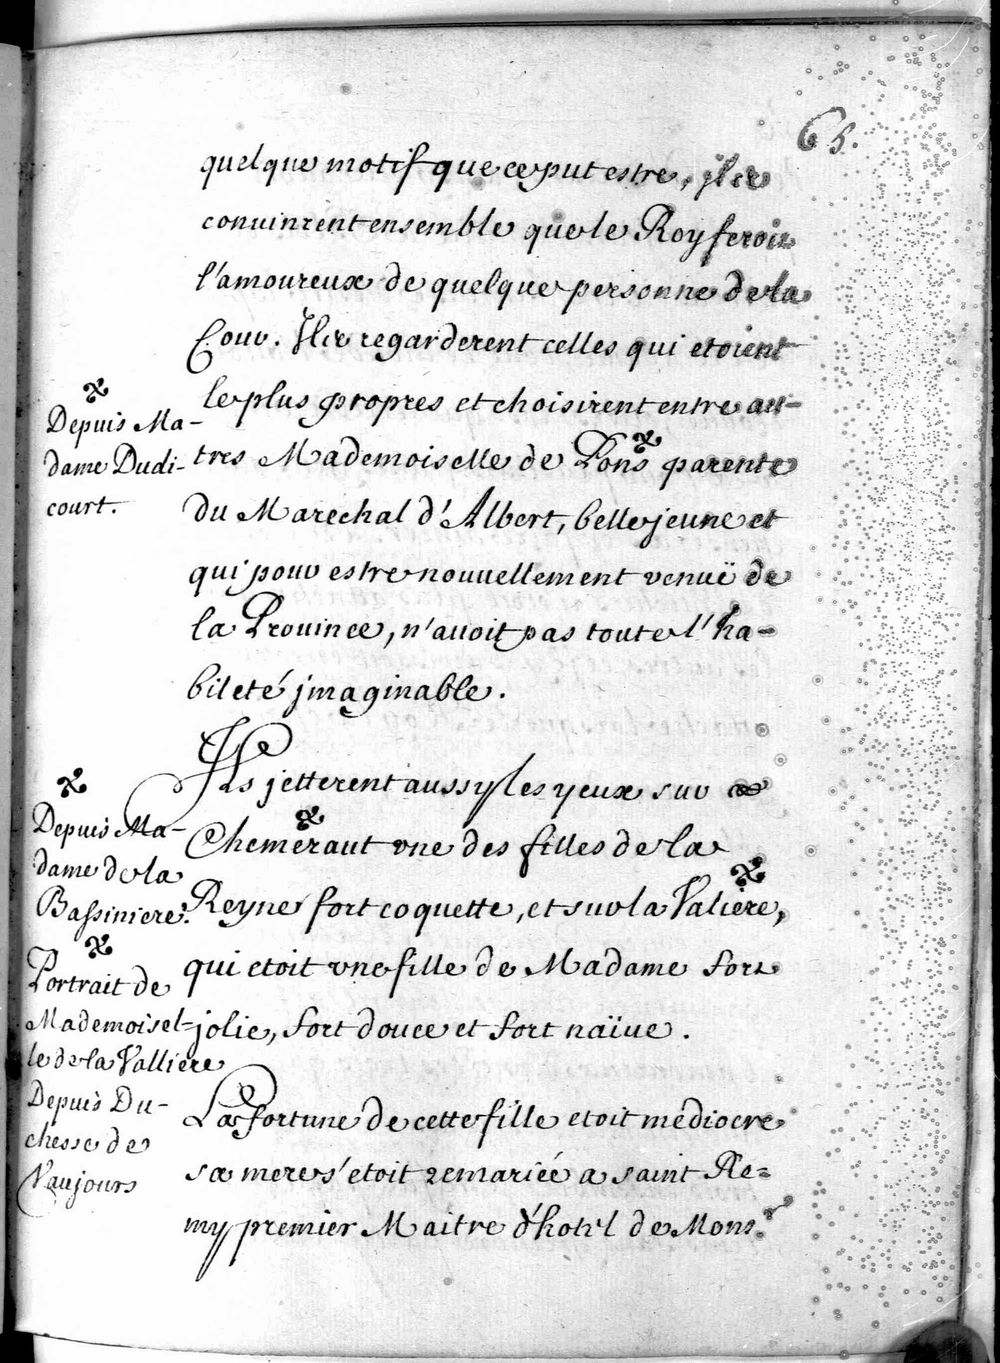 65.
quelque motif que ce put estre, jls
conuinrent ensemble que le Roy feroit
l'amoureux de quelque personne de la
Cour. Ils regarderent celles qui etoient
le plus propres et choisirent entre au-
tres Mademoiselle de Pons parente
du Marechal d'Albert, belle jeune et
qui pour estre nouuellement venuë de
la Prouince, n'auoit pas toute l'ha-
bileté jmaginable.
Ils jetterent aussy les yeux sur
Chemeraut vne des filles de la
Reyne fort coquette, et sur la Valiere,
qui etoit vne fille de Madame fort
jolie, fort douce et fort naïue.
La fortune de cette fille etoit médiocre
sa mere s'etoit remariée a saint Re=
my premier Maitre d'hotel de Mons.r
Depuis Ma-
dame Dudi-
court.
Depuis Ma-
dame de la
Bassiniere.
Portrait de
Mademoisel-
le de la Valliere
Depuis Du-
chesse de
Vaujours